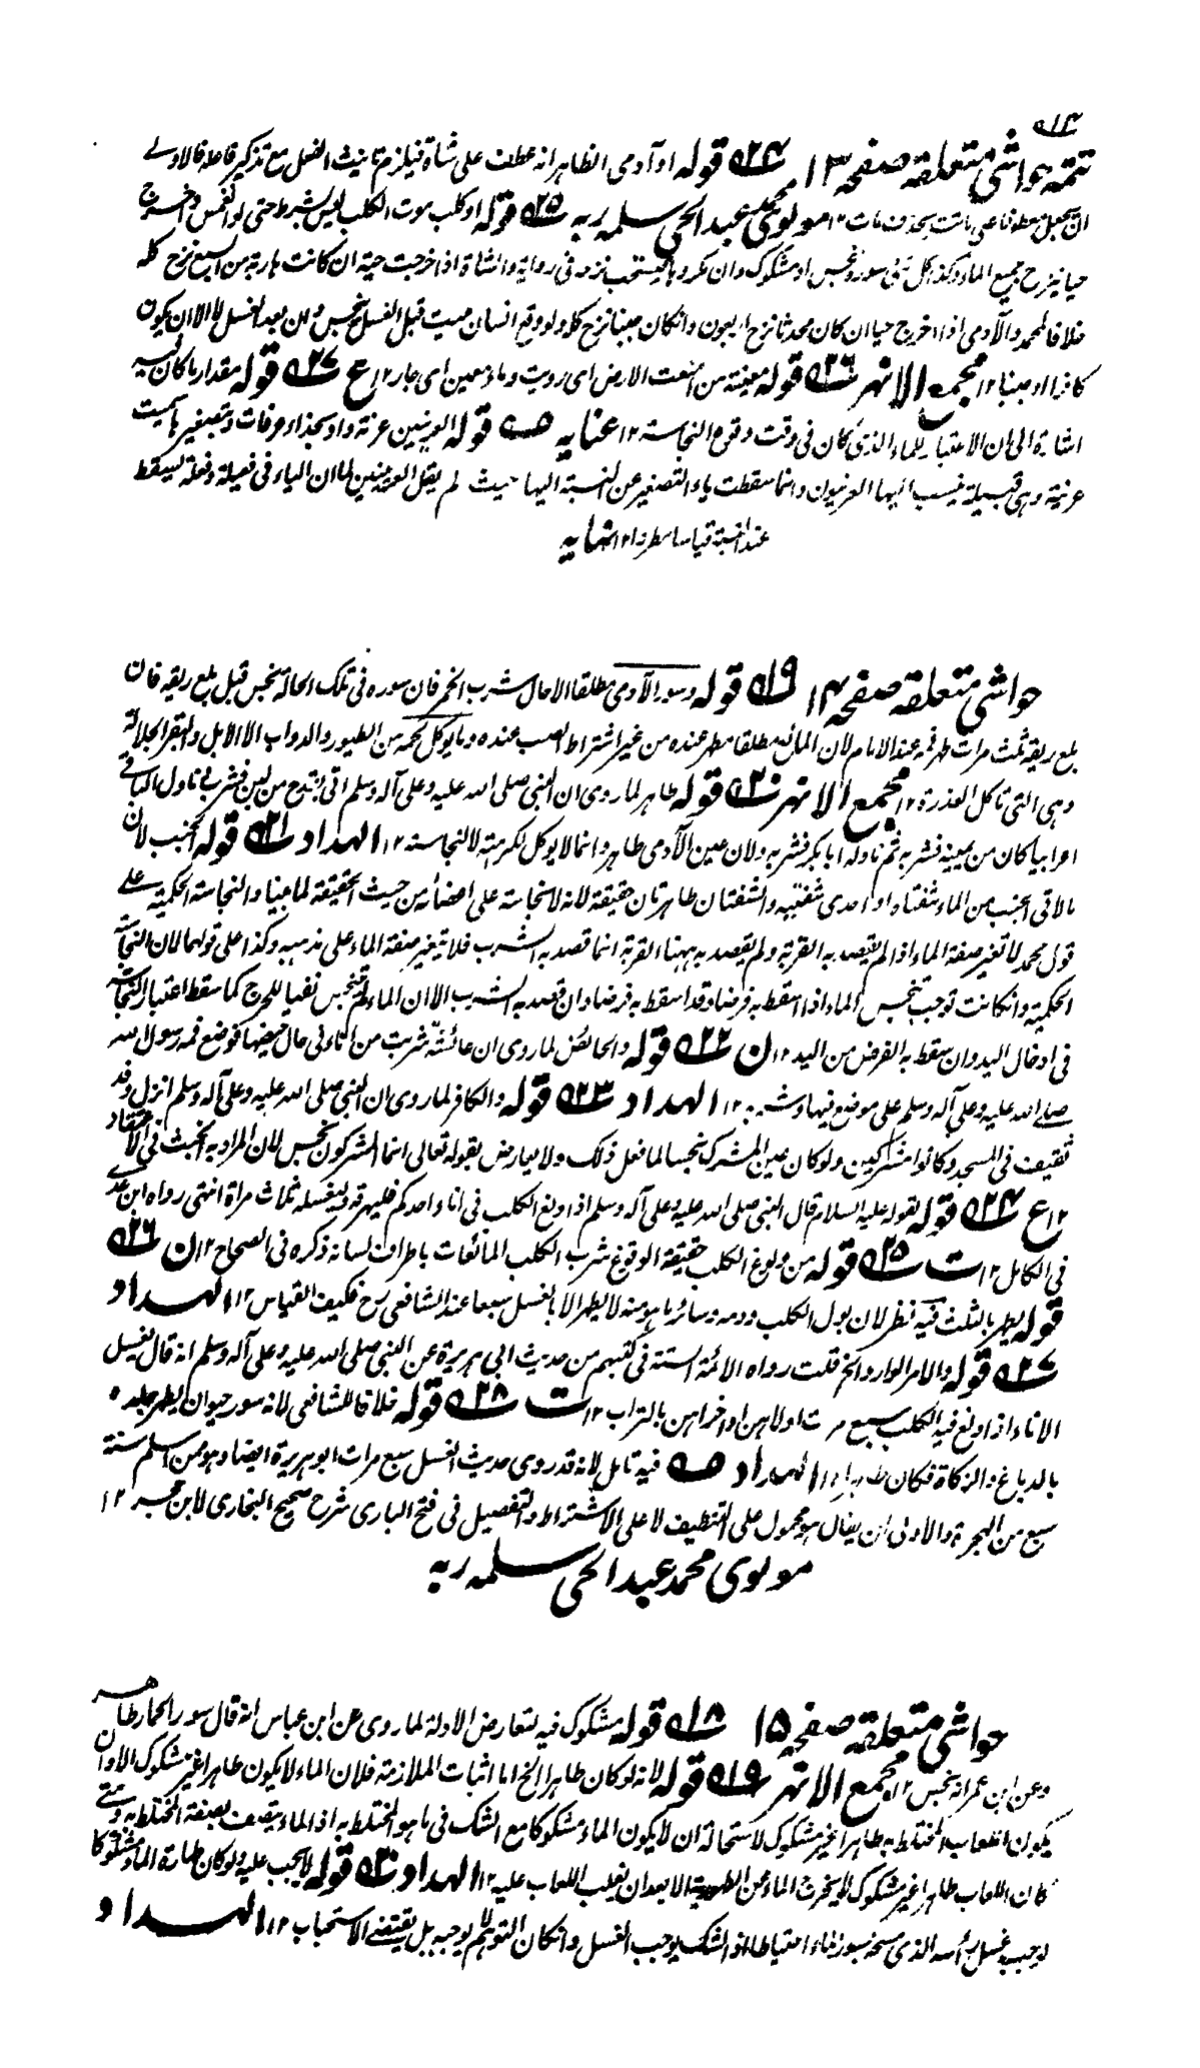 ۱۴
تتمه حواشی متعلقه صفحه ۱۳ ۲۴ قوله او آدمی الظاهر انه عطف علی شاة فیلزم تانیث الفعل مع تذکیر فاعله فالاولے
ان یجعل معطوفا علی ماتت بحذف مات ۱۲ مولوی محمد عبد الحی سلمه ربه ۲۵ قوله او کلب موت الکلب لیس بشرط حتی لو انغمس واخرج
حیا ینزح جمیع الماء وکذا کل شئ سوره نجس او مشکوک وان مکروها یستحب نزحه فی روایة والشاة اذا خرجت حیة ان کانت هاربة من السبع نزح کله
خلافا لمحمد والآدمی اذا اخرج حیا ان کان محدثا نزح اربعون وانکان جنبا نزح کله ولو وقع انسان میت قبل الغسل نجس ومن بعد الغسل لا الا ان یکون
کافرا او جنبا ۱۲ مجمع الانهر ۲۶ قوله معینة من امعنت الارض ای رویت وماء معین ای جار ۱۲ ع ۲۷ قوله مقدار ما کان فیه
اشارة الی ان الاعتبار للماء الذی کان فی وقت وقوع النجاسة ۱۲ عنایه قوله العرنیین عرنة واد بحذاء عرفات وبتصغیرها سمیت
عرینة وهی قبیلة ینسب الیها العرنیون وانما سقطت یاء التصغیر عن النسبة الیها حیث لم یقل العرینیین لما ان الیاء فی فعیلة وفعلة یسقط
عند النسبة قیاسا مطردا ۱۲ نهایه
حواشی متعلقه صفحه ۱۴ ۱۹ قوله وسور الآدمی مطلقا الا حال شرب الخمر فان سوره فی تلک الحالة نجس قبل بلع ریقه فان
بلع ریقه ثلث مرات طهر فمه عند الامام لان المائع مطلقا مطهر عنده من غیر اشتراط الصب عنده وما یوکل لحمه من الطیور والدواب الا الابل والبقر الجلالة
وهی التی تاکل العذرة ۱۲ مجمع الانهر ۲۰ قوله طاهر لما روی ان النبی صلی الله علیه وعلی آله وسلم اتی بقدح من لبن فشرب ناول الباقی
اعرابیا کان من یمینه فشربه ثم ناوله ابا بکر فشربه ولان عین الآدمی طاهر وانما لا یوکل لکرمته لا لنجاسته ۱۲ الهداد ۲۱ قوله الجنب لان
مالاقی الجنب من الماء شفتاه او احدی شفتیه والشفتان طاهرتان حقیقة لانه لا نجاسة علی اعضائه من حیث الحقیقة لما بینا والنجاسة الحکمیة علے
قول محمد لا تغیر صفة الماء اذا لم یقصد به القربة ولم یقصد به ههنا القربة انما قصد به الشرب فلا تغیر صفة الماء علی مذهبه وکذا علی قولهما لان النجاسة
الحکمیة وانکانت توجب تنجس الماء اذا اسقط به فرضا وقد اسقط به فرضا وان قصد به الشرب الا ان الماء لم یتنجس نفیا للحرج کما سقط اعتبار النجاسة
فی ادخال الید وان سقط به الفرض من الید ۱۲ ن ۲۲ قوله والحائض لما روی ان عائشة شربت من اناء فی حال حیضها فوضع فمه رسول الله
صلے الله علیه وعلی آله وسلم علی موضع فیها وشرب ۱۲ الهداد ۲۳ قوله والکافر لما روی ان النبی صلی الله علیه وعلی آله وسلم انزل وفد
ثقیف فی المسجد وکانوا مشرکین ولو کان عین المشرک نجسا لما فعل ذلک ولا یعارض بقوله تعالی انما المشرکون نجس لان المراد به الخبث فی الاعتقاد
۱۲ ع ۲۴ قوله لقوله علیه السلام قال النبی صلی الله علیه وعلی آله وسلم اذا ولغ الکلب فی اناء احدکم فلیهرقه ولیغسله ثلاث مرات انتهی رواه ابن عدے
فی الکامل ۱۲ ت ۲۵ قوله من ولوغ الکلب حقیقة الولوغ شرب الکلب المائعات باطراف لسانه ذکره فی الصحاح ۱۲ ن ۲۶
قوله یطهر بالثلث فیه نظر لان بول الکلب ودمه وسائر ما هو منه لا یطهر الا بالغسل سبعا عند الشافعی رح فکیف القیاس ۱۲ الهداد
۲۷ قوله والامر الوارد الخ قلت رواه الائمة الستة فی کتبهم من حدیث ابی هریرة عن النبی صلی الله علیه وعلی آله وسلم انه قال یغسل
الاناء اذا ولغ فیه الکلب سبع مرات اولاهن او اخراهن بالتراب ۱۲ ت ۲۸ قوله خلافا للشافعی لانه سور حیوان یطهر جلده
بالدباغ والزکاة فکان طاهرا ۱۲ الهداد فیه تامل لانه قد روی حدیث الغسل سبع مرات ابو هریرة ایضا وهو ممن اسلم سنة
سبع من الهجرة والاولی ان یقال هو محمول علی التنظیف لا علی الاشتراط والتفصیل فی فتح الباری شرح صحیح البخاری لابن حجر ۱۲
مولوی محمد عبد الحی سلمه ربه
حواشی متعلقه صفحه ۱۵ ۱۸ قوله مشکوک فیه لتعارض الادلة لما روی عن ابن عباس انه قال سور الحمار طاهر
وعن ابن عمر انه نجس ۱۲ مجمع الانهر ۱۹ قوله لانه لو کان طاهرا الخ اما اثبات الملازمة فلان الماء لا یکون طاهرا غیر مشکوک الا وان
یکون اللعاب المختلط به طاهرا غیر مشکوک لاستحالة ان لا یکون الماء مشکوکا مع الشک فی ما هو المختلط به اذ الماء یتصف بصفة المختلط به ومتے
کان اللعاب طاهرا غیر مشکوک لا یخرج الماء من الطهوریة الا بعد ان یغلب اللعاب علیه ۱۲ الهداد ۲۰ قوله لا یجب علیه ولو کان طهارة الماء مشکوکا
لوجب غسل رأسه الذی مسحه بسور الحمار احتیاطا اذ الشک یوجب الغسل وانکان التوهم لا یوجبه بل یقتضی الاستحباب ۱۲ الهداد